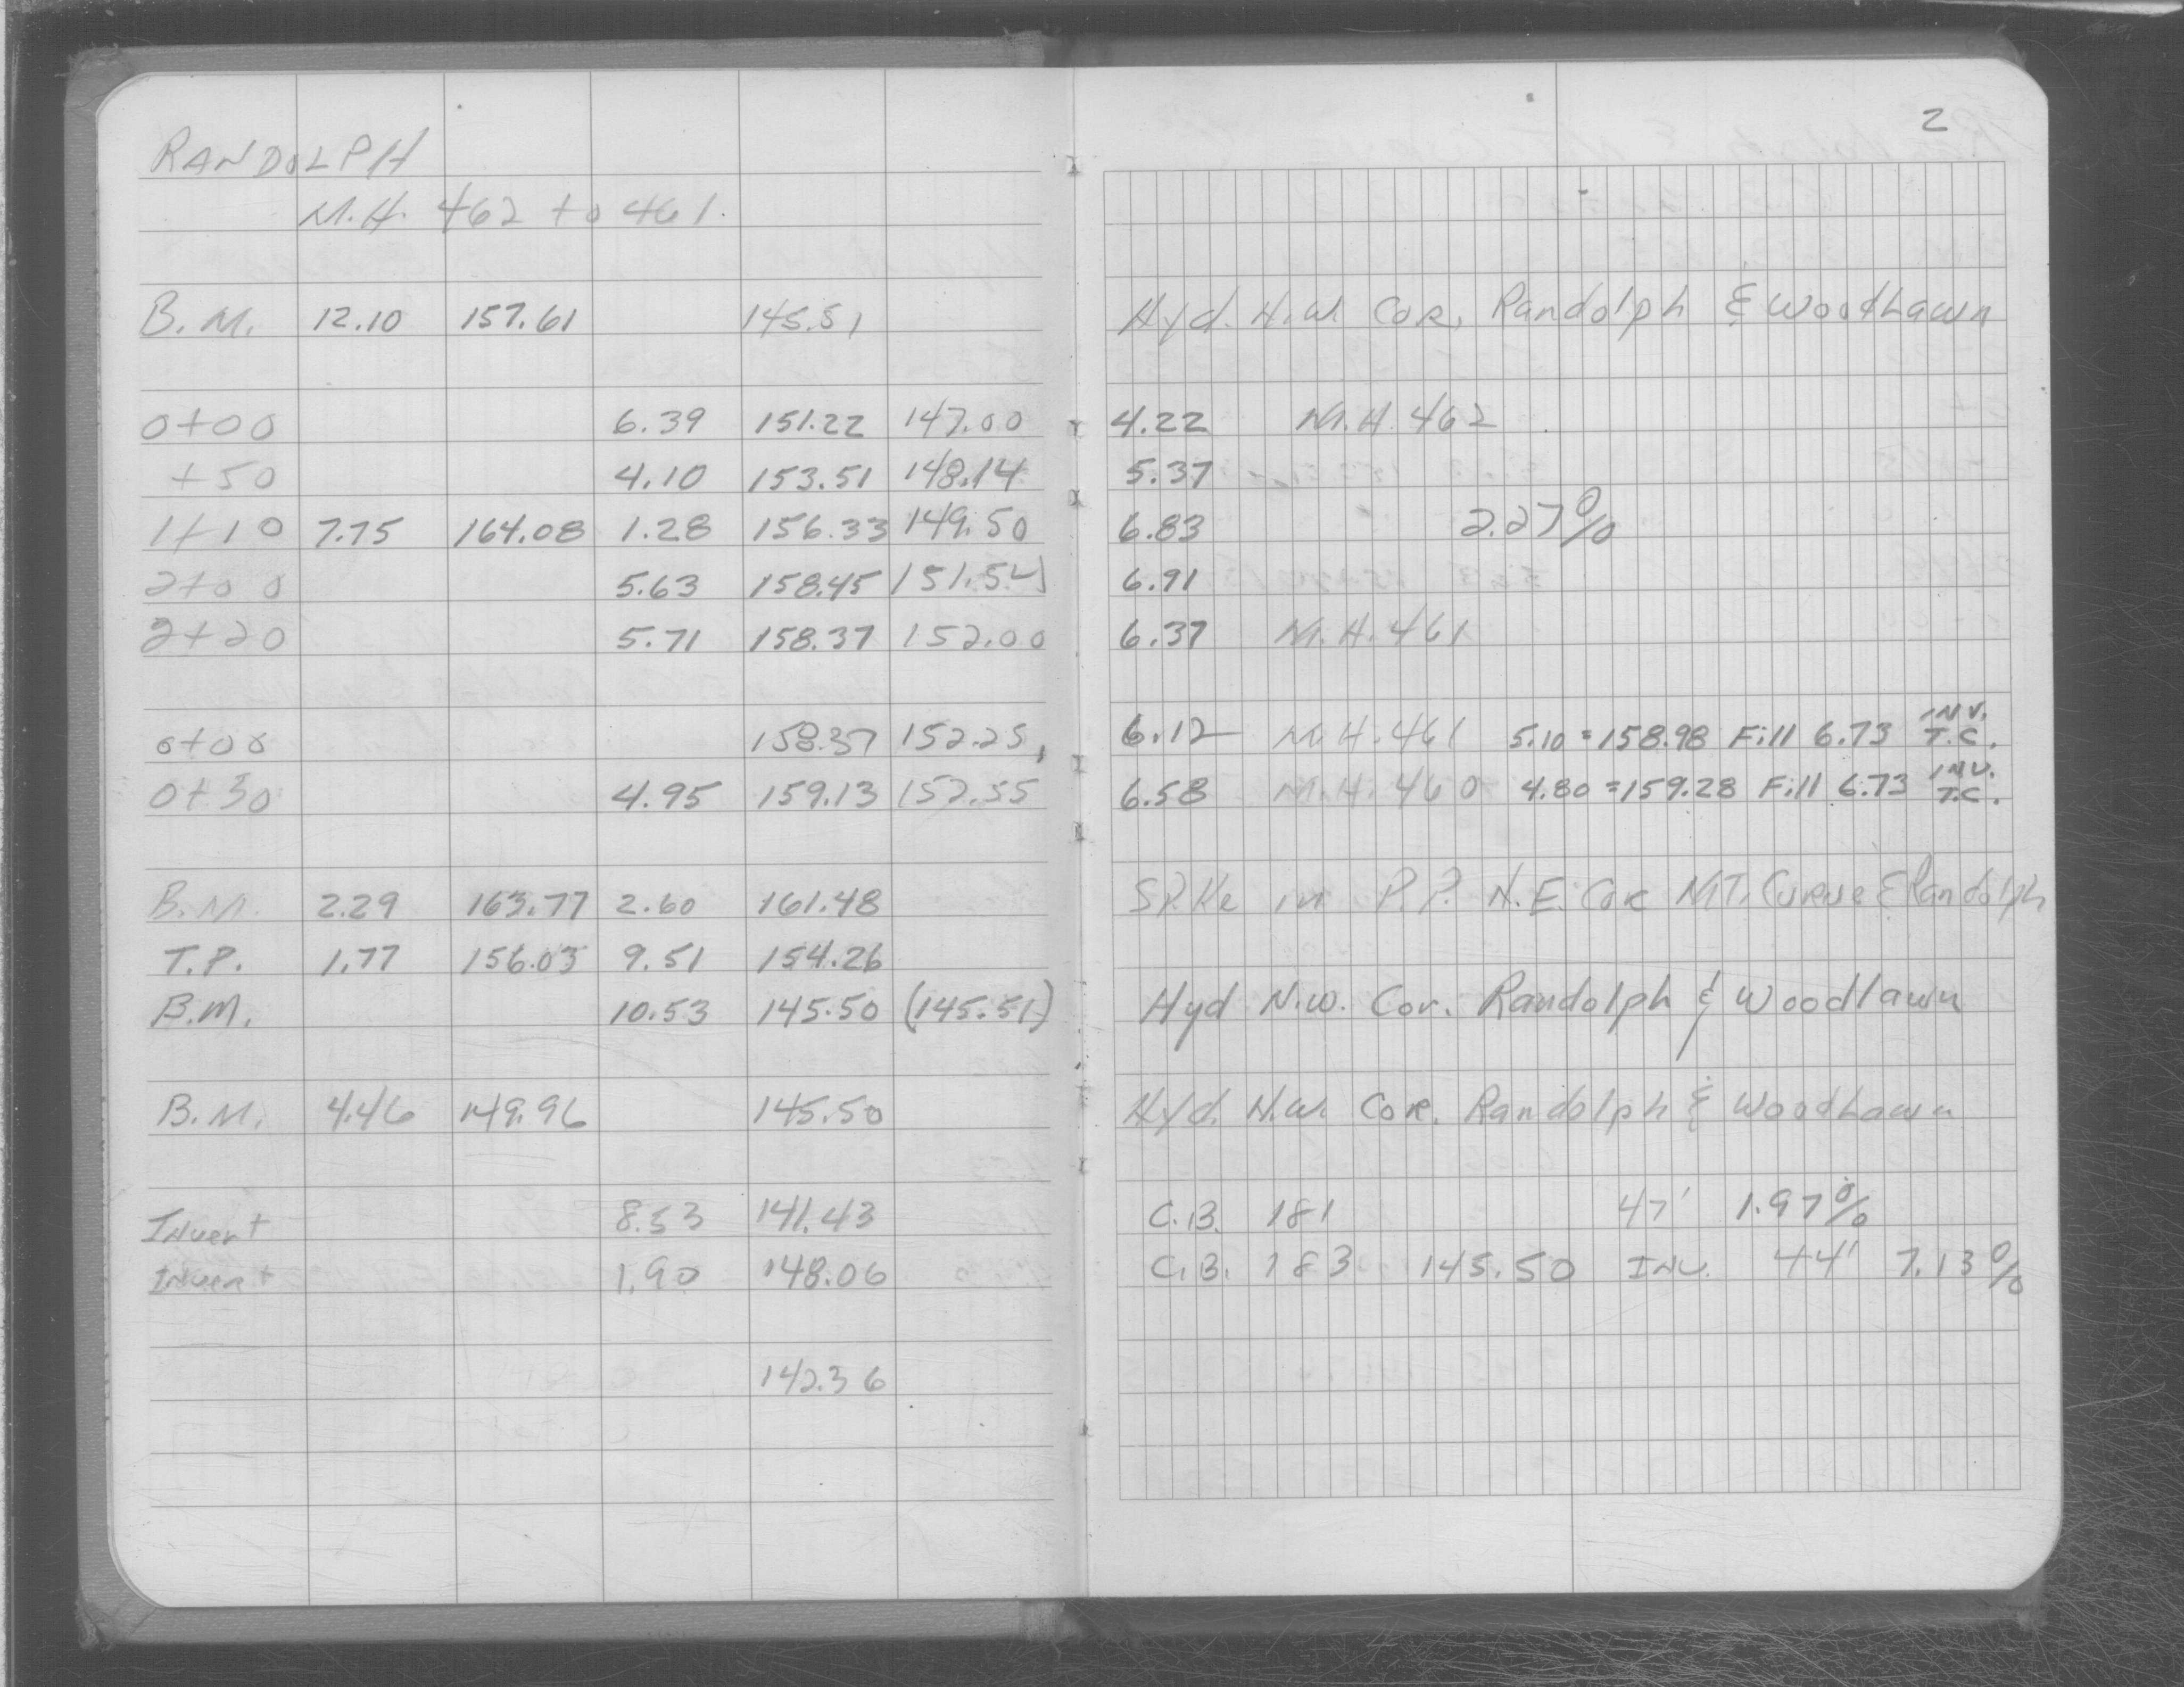 2
RANDOLPH
M.H. 462 to 461.
B.M. 12.10 157.61 145.51 Hyd. N.W. Cor. Randolph & Woodlawn
0+00 6.39 151.22 147.00 4.22 M.H. 462
+50 4.10 153.51 148.14 5.37
1+10 7.75 164.08 1.28 156.33 149.50 6.83 2.27%
2+00 5.63 158.45 151.54 6.91
2+20 5.71 158.37 152.00 6.37 M.H. 461
0+00 158.37 152.25 6.12 M.H. 461 5.10 = 158.98 Fill 6.73 INV. T.C.
0+30 4.95 159.13 152.55 6.58 M.H. 460 4.80 = 159.28 Fill 6.73 INV. T.C.
B.M. 2.29 163.77 2.60 161.48 Spike in P.P. N.E. Cor MT. Curve & Randolph
T.P. 1.77 156.03 9.51 154.26
B.M. 10.53 145.50 (145.51) Hyd N.W. Cor. Randolph & Woodlawn
B.M. 4.46 149.96 145.50 Hyd. N.W. Cor. Randolph & Woodlawn
Invert 8.53 141.43 C.B. 181 47' 1.97%
Invert 1.90 148.06 C.B. 183 145.50 INV. 44' 7.13%
142.36